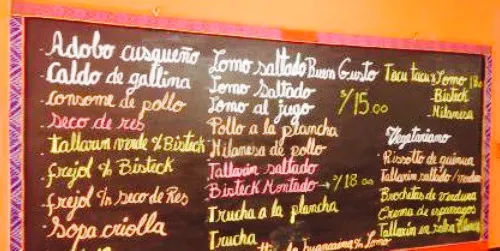 Adobo cusqueño
Caldo de gallina
Consome de pollo
Seco de res
tallarin verde c/ Bisteck
frejol c/ Bisteck
frejol c/n seco de Res
Sopa criolla
Lomo saltado Buen Gusto
Lomo Saltado
Lomo al jugo
S/15.00
Pollo a la plancha
Milanesa de pollo
Tallarin saltado
Bisteck Montado → S/18.00
Trucha a la plancha
Trucha
Lomo
Tacu tacu c/ Lomo 18
-Bisteck
-Milanesa
Vegetariano
Rissolto de quinua
Tallarin saltado/verdura
Brochetas de verdura
Crema de esparragos
Tallarin en salsa Blanca